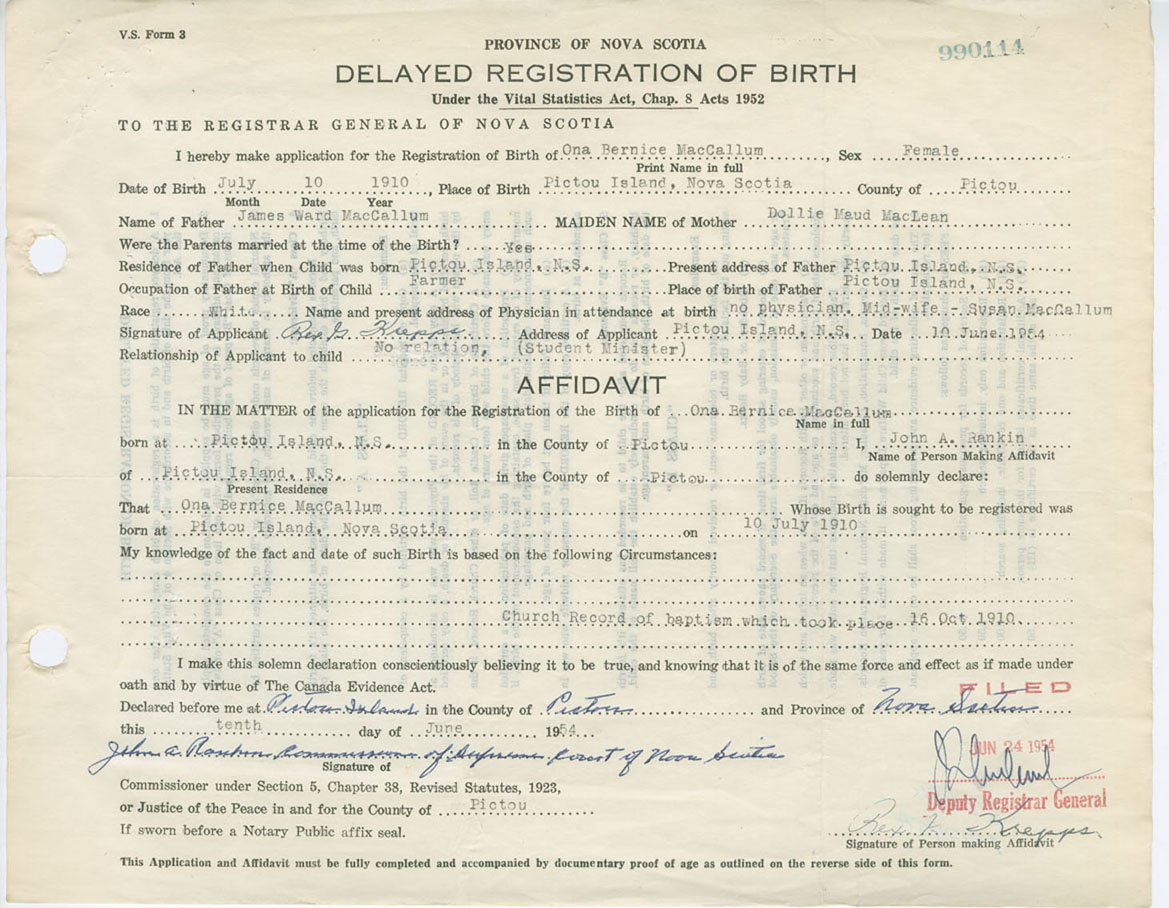 V.S. Form 3
PROVINCE OF NOVA SCOTIA
990114
DELAYED REGISTRATION OF BIRTH
Under the Vital Statistics Act, Chap. 8 Acts 1952
TO THE REGISTRAR GENERAL OF NOVA SCOTIA
I hereby make application for the Registration of Birth of Ona Bernice MacCallum, Sex Female
Print Name in full
Date of Birth July 10 1910, Place of Birth Pictou Island, Nova Scotia County of Pictou
Month Date Year
Name of Father James Ward MacCallum MAIDEN NAME of Mother Dollie Maud MacLean
Were the Parents married at the time of the Birth? Yes
Residence of Father when Child was born Pictou Island, N.S. Present address of Father Pictou Island, N.S.
Occupation of Father at Birth of Child Farmer Place of birth of Father Pictou Island, N.S.
Race White Name and present address of Physician in attendance at birth no physician. Mid-wife - Susan MacCallum
Signature of Applicant Rev. G. Krepps Address of Applicant Pictou Island, N.S. Date 10 June 1954
Relationship of Applicant to child No relation, (Student Minister)
AFFIDAVIT
IN THE MATTER of the application for the Registration of the Birth of Ona Bernice MacCallum
Name in full
born at Pictou Island, N.S. in the County of Pictou I, John A. Rankin
Name of Person Making Affidavit
of Pictou Island, N.S. in the County of Pictou do solemnly declare:
Present Residence
That Ona Bernice MacCallum Whose Birth is sought to be registered was
born at Pictou Island, Nova Scotia on 10 July 1910
My knowledge of the fact and date of such Birth is based on the following Circumstances:
Church Record of baptism which took place 16 Oct 1910.
I make this solemn declaration conscientiously believing it to be true, and knowing that it is of the same force and effect as if made under
oath and by virtue of The Canada Evidence Act.
FILED
Declared before me at Pictou Island in the County of Pictou and Province of Nova Scotia
this tenth day of June 1954
JUN 24 1954
John A Rankin Commissioner of Supreme Court of Nova Scotia
Signature of
Commissioner under Section 5, Chapter 38, Revised Statutes, 1923,
Deputy Registrar General
or Justice of the Peace in and for the County of Pictou
Rev. Krepps
If sworn before a Notary Public affix seal.
Signature of Person making Affidavit
This Application and Affidavit must be fully completed and accompanied by documentary proof of age as outlined on the reverse side of this form.